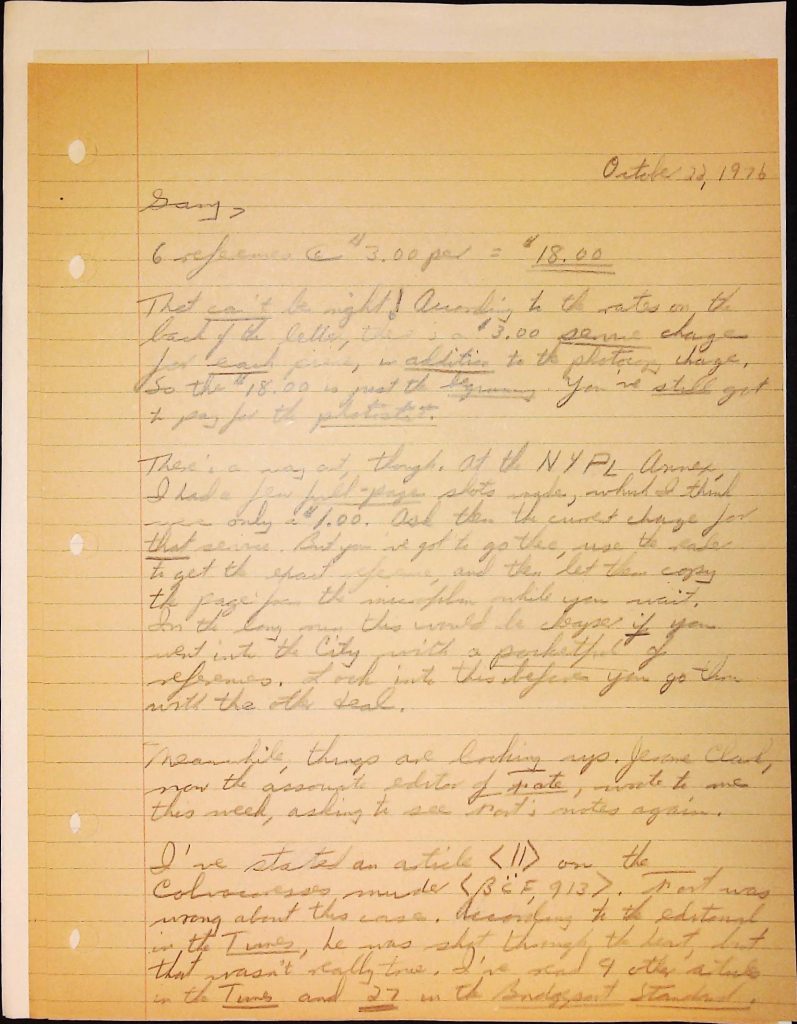 October 22, 1976
Gary,
6 references @ $3.00 per = $18.00
That can't be right! According to the rates on the
back of the letter, there is a $3.00 service charge
for each , in addition to the photocopy charge.
So the $18.00 is just the beginning. You've still got
to pay for the photostat.
There's a way out, though. At the NYPL Annex,
I had a few full-page stats made, which I think
were only a $1.00. Ask them the current charge for
that service. But you've got to go there, use the reader
to get the exact reference, and then let them copy
the page from the microfilm while you wait.
In the long run this would be cheaper if you
went into the City with a pocketful of
references. Look into this before you go thru
with the other deal.
Meanwhile, things are looking up. Jerome Clark,
now the associate editor of Fate, wrote to me
this week, asking to see Fort's notes again.
I've started an article <11> on the
Colvocoresses murder <BCF, 913>. Fort was
wrong about this case. According to the editorial
in the Times, he was shot through the heart, but
that wasn't really true. I've read 9 other articles
in the Times and 27 in the Bridgeport Standard.